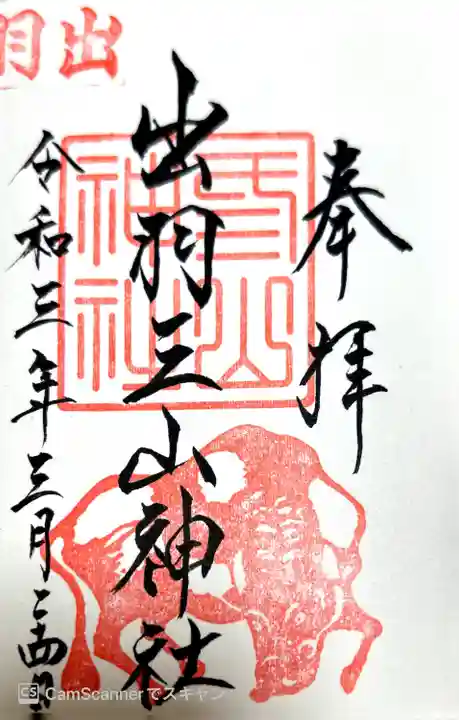 奉拝
出羽三山神社
令和三年三月二十四日
出羽
CamScannerでスキャン